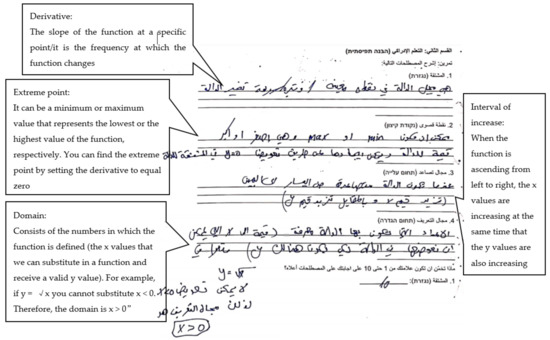 Derivative:
The slope of the function at a specific
point/it is the frequency at which the
function changes
Extreme point:
It can be a minimum or maximum
value that represents the lowest or the
highest value of the function,
respectively. You can find the extreme
point by setting the derivative to equal
zero
Domain:
Consists of the numbers in which the
function is defined (the x values that
we can substitute in a function and
receive a valid y value). For example,
if y = √x you cannot substitute x < 0.
Therefore, the domain is x > 0"
القسم الثاني: التعلم الإدراكي (הבנה תפיסתית)
تمرين: إشرح المصطلحات التالية:
1. المشتقة (נגזרת)
هي ميل الدالة في نقطة معينة / تغير الدالة
2. نقطة قصوى (נקודת קיצון)
ممكن ان تكون min او max وهي اصغر او اكبر
قيمة للدالة ويمكن ايجادها عن طريق تعويض في المشتقة
3. مجال تصاعد (תחום עלייה)
عندما تكون الدالة متصاعدة من اليسار لليمين
(تزيد قيم x وبالمقابل تزيد قيم y)
4. مجال التعريف (תחום הגדרה)
الاعداد التي تكون بها الدالة معرفة (قيمة ال x التي يمكن
ان نعوضها في الدالة لكي يكون هنالك y)
y = √x
لا يمكن تعويض x<0
لذلك مجال التعريف هو
x>0
ماذا تخمّن ان تكون علامتك من 1 حتى 10 على اجابتك على المصطلحات أعلاه؟
1. المشتقة (נגזרת): 10
Interval of
increase:
When the
function is
ascending from
left to right, the x
values are
increasing at the
same time that
the y values are
also increasing